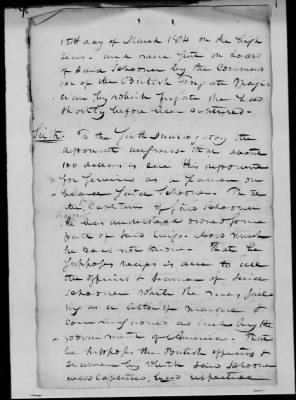 15th day of March 1814 on the high
Seas and were put on board
of said Schooner by the Comman
der of the British Frigate
by which frigate she had
shortly before been captured.
Sixth. To the Sixth Interrogatory the
deponent answers that about
100 dollars is due this deponent
for services as a Seaman on
board said Schooner. That
the Captain of said Schooner
he has understood owned some
part of said How much
he does not know. That he
supposes wages is due to all
the officers & seamen of said
Schooner while she was sail
ing as a letter of marque &
commissioned as such by the
government of America. That
he supposes the British officers &
Seamen by which said Schooner
was captured, have respective